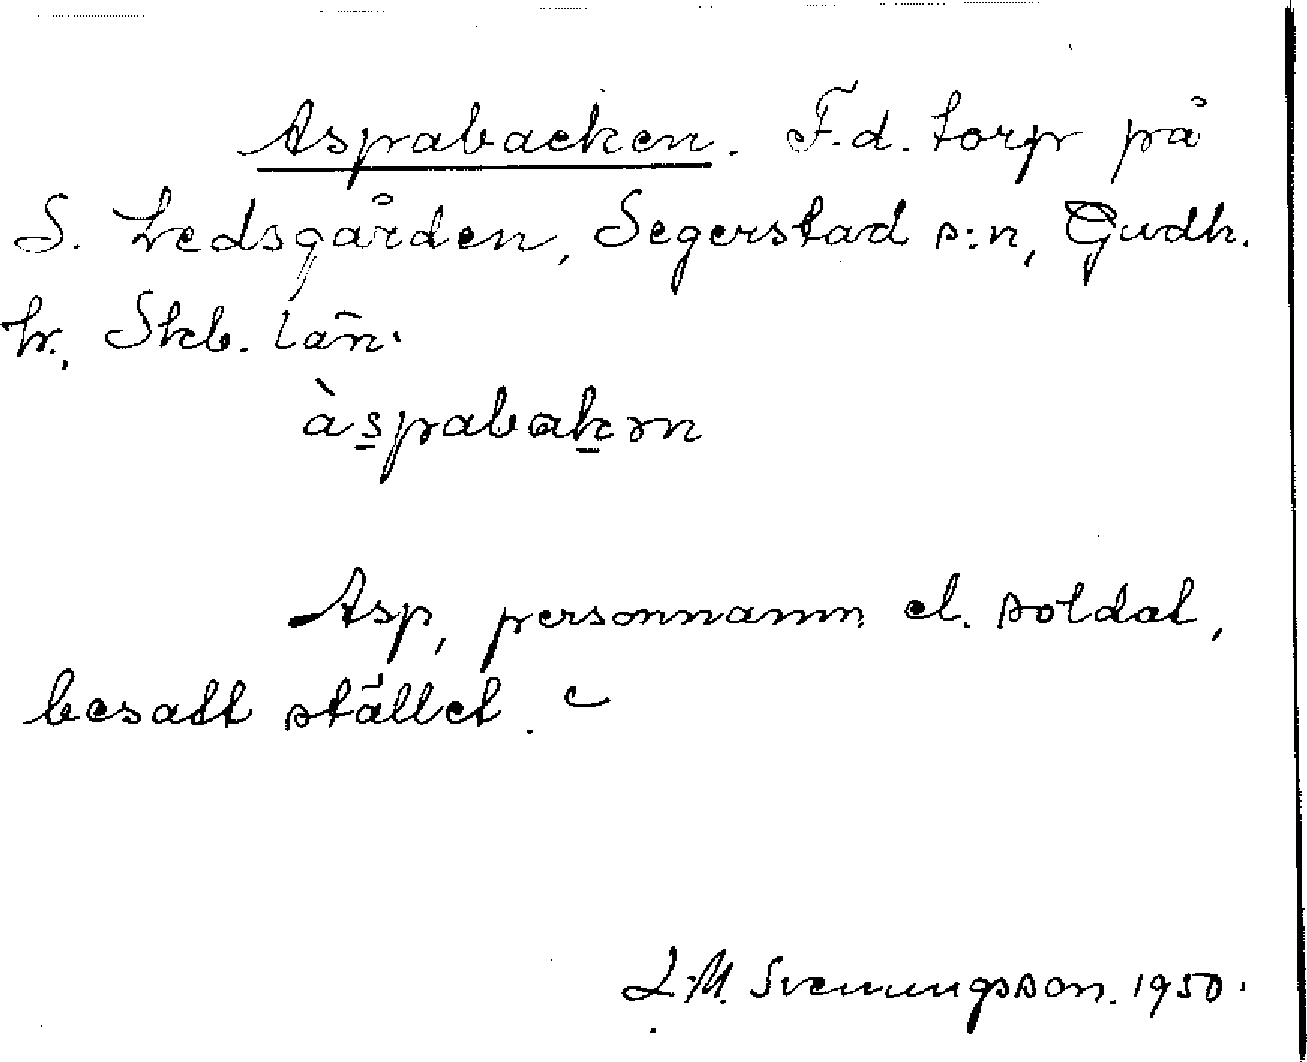 Aspabacken. F.d. torp på
S. Ledsgården, Segerstad s:n, Gudh.
hr., Skb. län.
àspabakɘn
Asp, personnamn el. soldat,
besatt stället.
L.M. Svenungsson. 1950.